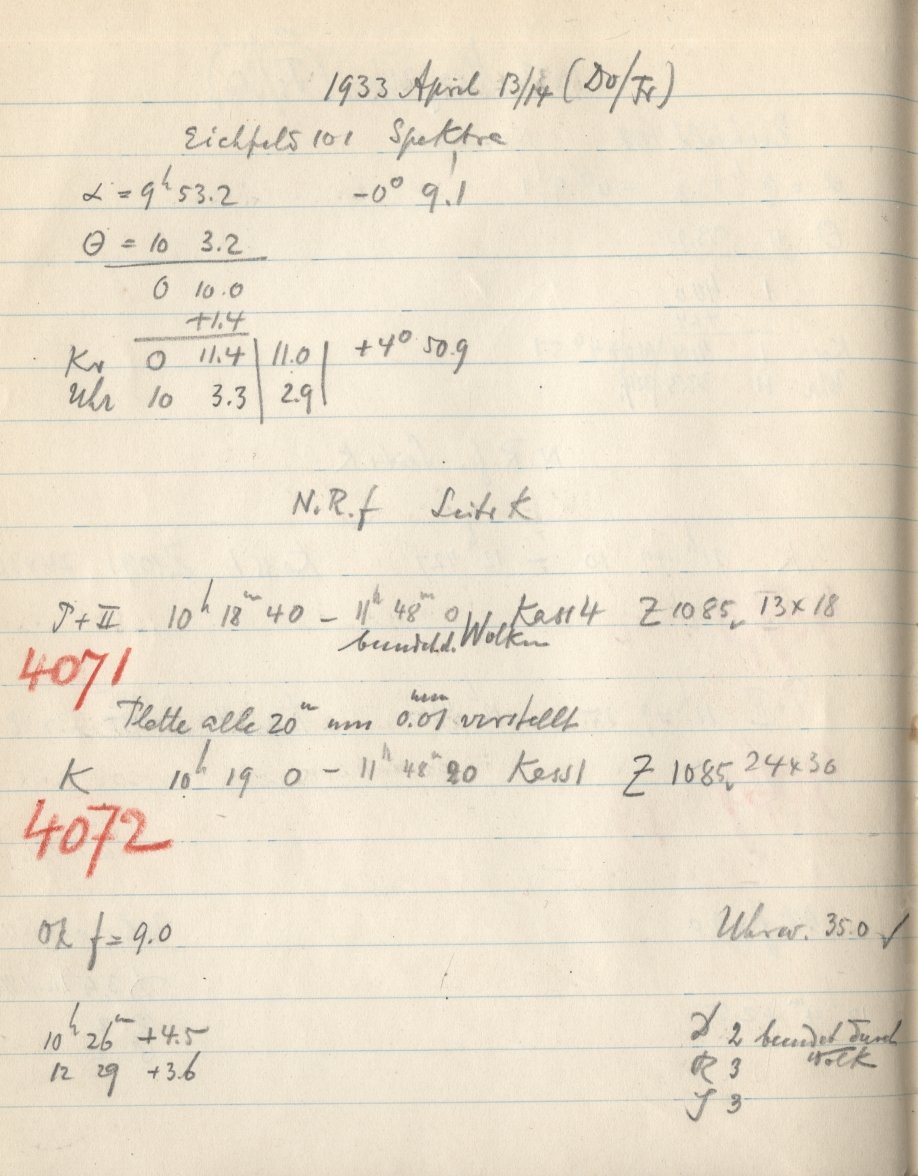 1933 April 13/14 (Do/Fr)
Eichfeld 101 Spektra
α = 9ʰ 53.2 -0° 9.1'
θ = 10 3.2
0 10.0
+1.4
Kr 0 11.4 | 11.0 | +4° 50.9
Uhr 10 3.3 | 2.9 |
N.R.f Seite K
T+II 10ʰ 18ᵐ 40 - 11ʰ 48ᵐ 0 Kass 4 Z 1085, 13x18
beendet d. Wolken
4071
Platte alle 20ᵐ um 0.01 mm verstellt
K 10ʰ 19 0 - 11ʰ 48ᵐ 20 Kass 1 Z 1085, 24x30
4072
f = 9.0 Uhrw. 35.0 ✓
10ʰ 26ᵐ +4.5 2 beendet durch
12 29 +3.6 R 3 Wolk
J 3